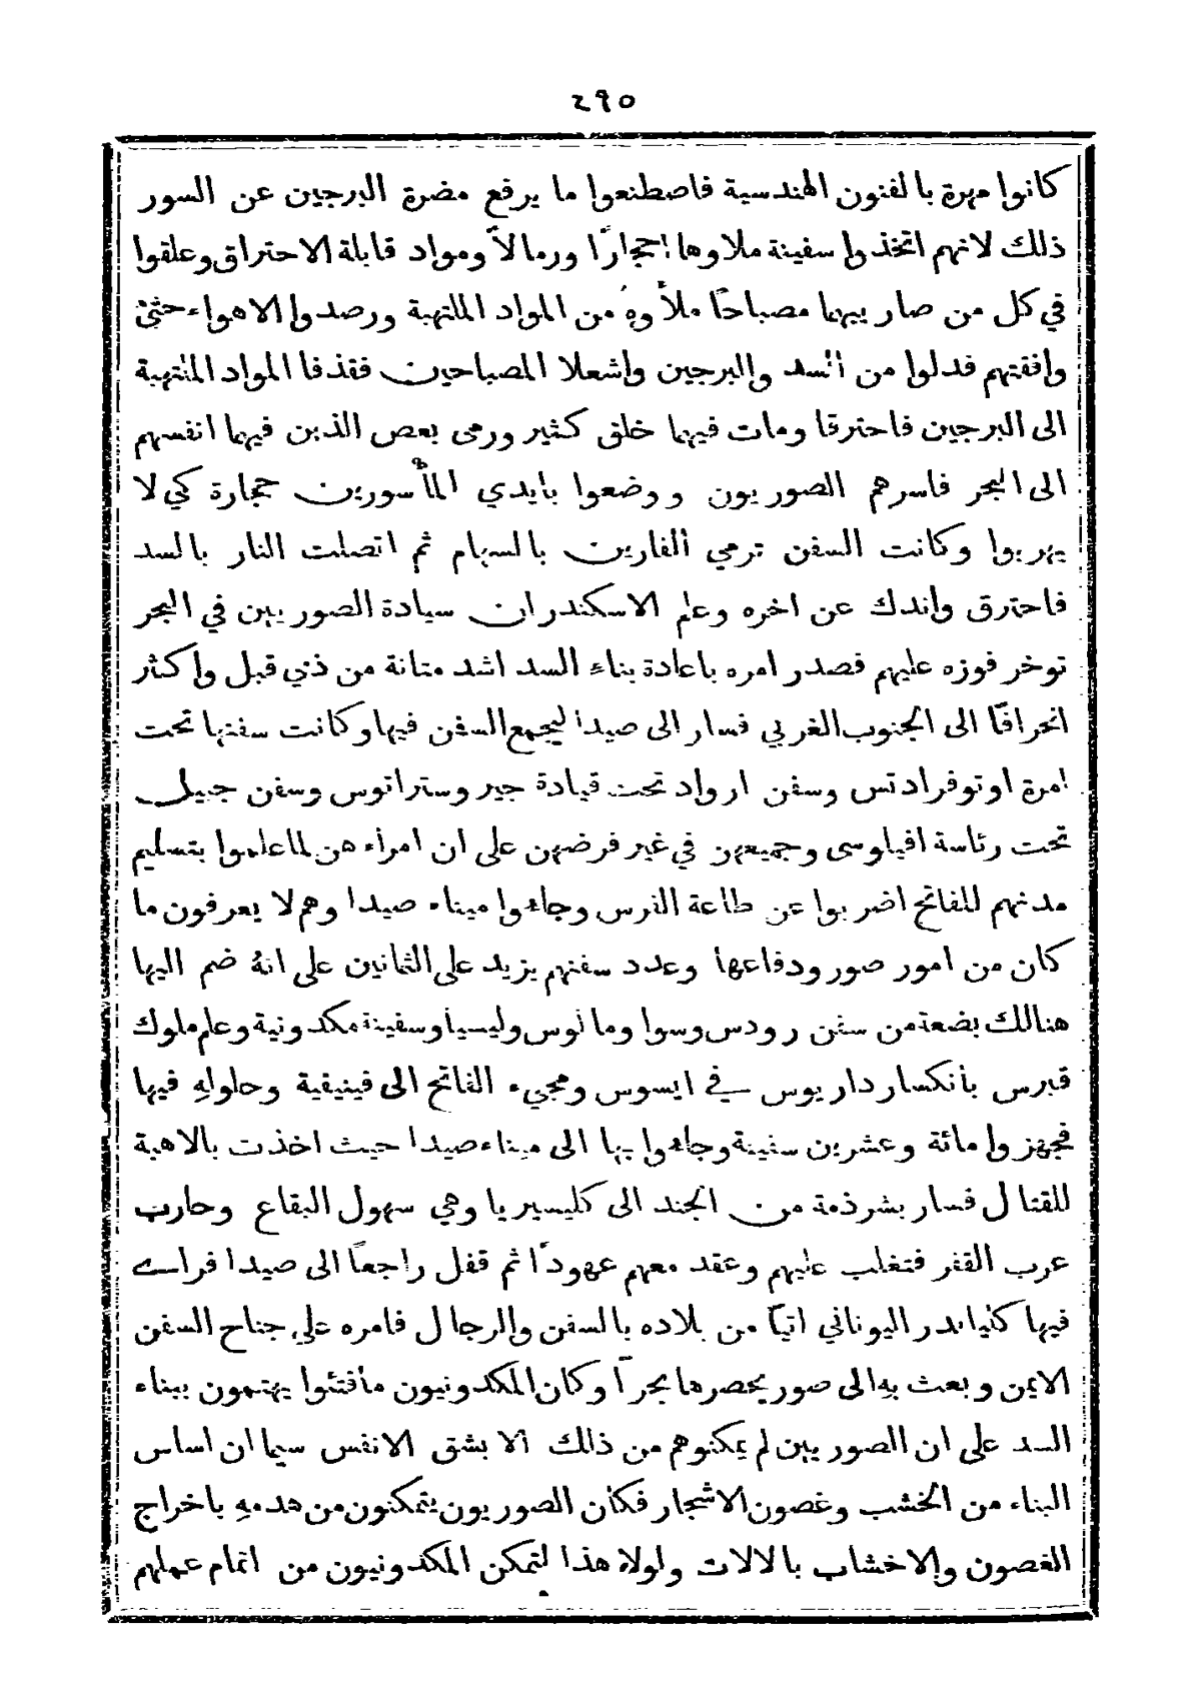 ٢٩٥
كانوا مهرة بالفنون الهندسية فاصطنعوا ما يرفع مضرة البرجين عن السور
ذلك لانهم اتخذوا سفينة ملاوها احجارًا ورمالاً ومواد قابلة الاحتراق وعلقوا
في كل من صارييها مصباحًا ملأوهُ من المواد الملتهبة ورصدوا الاهواء حتى
وافقتهم فدلوا من السد والبرجين واشعلا المصباحين فقذفا المواد الملتهبة
الى البرجين فاحترقا ومات فيهما خلق كثير ورمى بعض الذين فيهما انفسهم
الى البحر فاسرهم الصوريون ووضعوا بايدي المأسورين حجارة كي لا
يهربوا وكانت السفن ترمي الفارين بالسهام ثم اتصلت النار بالسد
فاحترق واندك عن اخره وعلم الاسكندر ان سيادة الصوريين في البحر
توخر فوزه عليهم فصدر امره باعادة بناء السد اشد متانة من ذي قبل واكثر
انحرافًا الى الجنوب الغربي فسار الى صيدا ليجمع السفن فيها وكانت سفنها تحت
امرة اوتوفرادتس وسفن ارواد تحت قيادة جيروستراتوس وسفن جبيل
تحت رئاسة افيلوسى وجميعهن في غير فرضهن على ان امراءهن لما علموا بتسليم
مدنهم للفاتح اضربوا عن طاعة الفرس وجاءوا ميناء صيدا وهم لا يعرفون ما
كان من امور صور ودفاعها وعدد سفنهم يزيد على الثمانين على انهُ ضم اليها
هنالك بضعة من سفن رودس وسوا ومالوس وليسيا وسفينة مكدونية وعلم ملوك
قبرس بانكسار داريوس في ايسوس ومجيء الفاتح الى فينيقية وحلولهِ فيها
فجهزوا مائة وعشرين سفينة وجاءوا بها الى ميناء صيدا حيث اخذت بالاهبة
للقتال فسار بشرذمة من الجند الى كليسيريا وهي سهول البقاع وحارب
عرب القفر فتغلب عليهم وعقد معهم عهودًا ثم قفل راجعًا الى صيدا فراى
فيها كلياندر اليوناني اتيًا من بلاده بالسفن والرجال فامره على جناح السفن
الايمن وبعث بهِ الى صور يحصرها بحراً وكان المكدونيون ما فتئوا يهتمون ببناء
السد على ان الصوريين لم يمكنوهم من ذلك الا بشق الانفس سيما ان اساس
البناء من الخشب وغصون الاشجار فكان الصوريون يتمكنون من هدمهِ باخراج
الغصون والاخشاب بالالات ولولا هذا لتمكن المكدونيون من اتمام عملهم